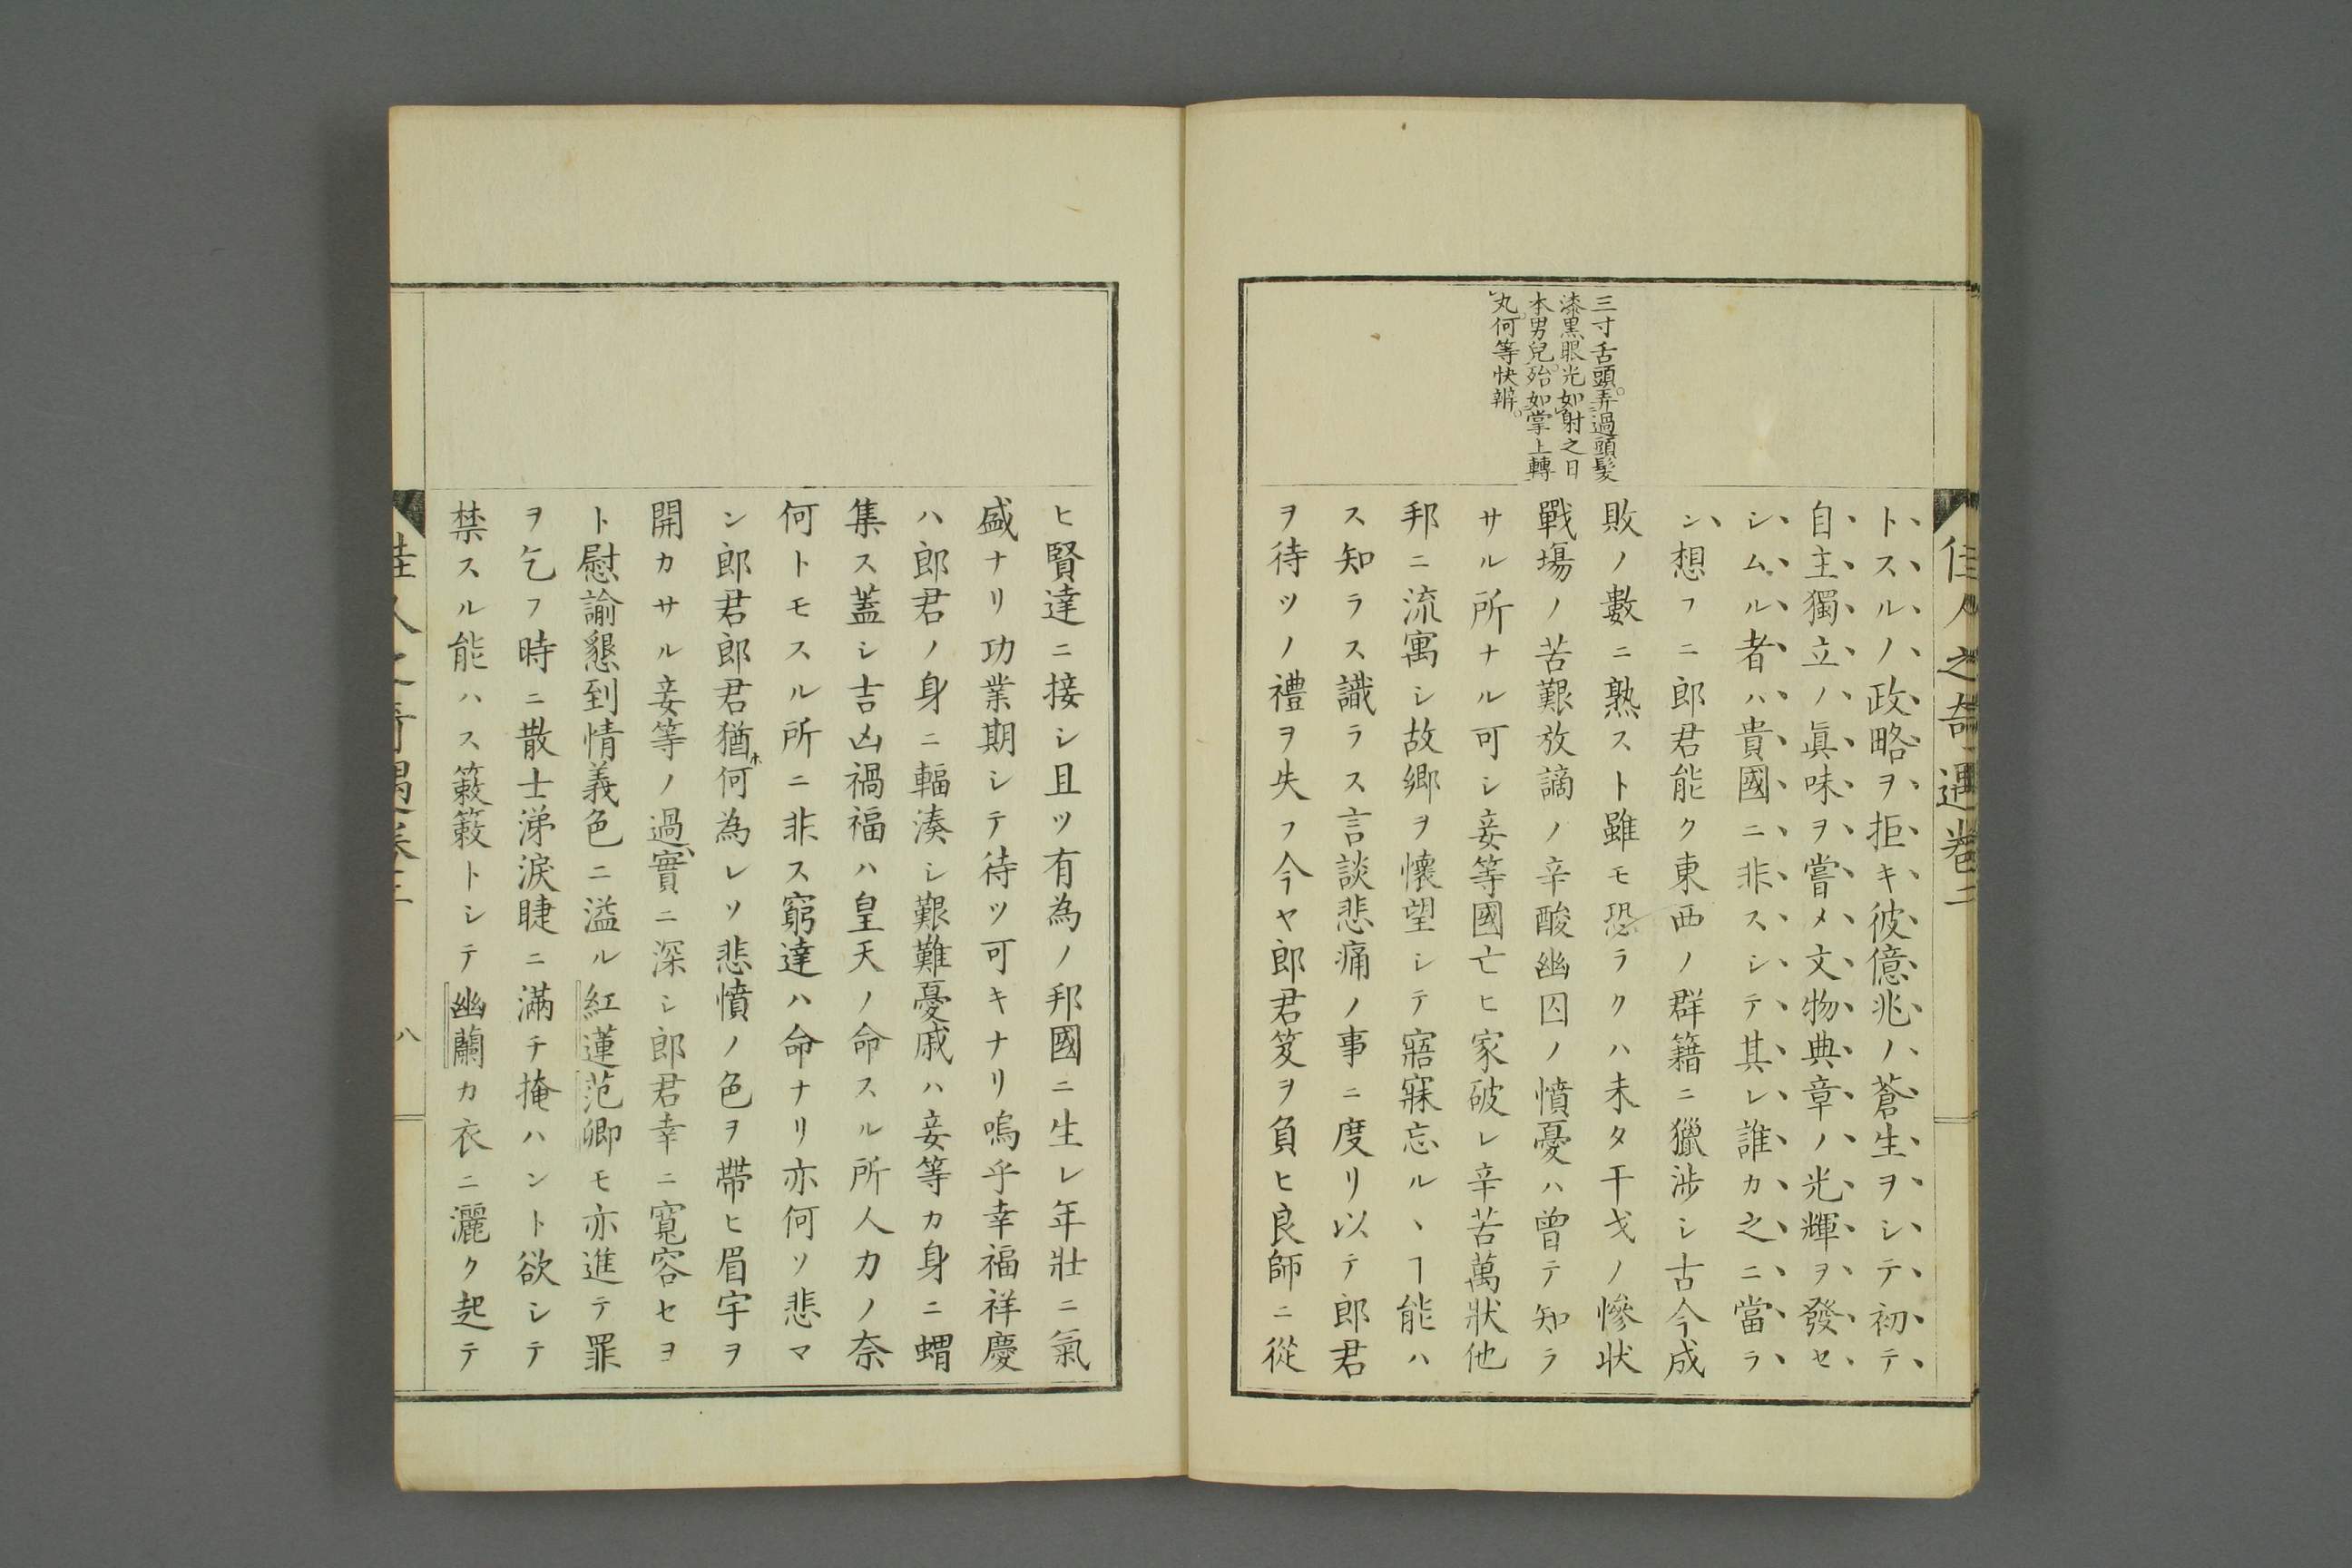 佳人之奇遇卷二
三寸舌頭。弄過頭髮
漆黒眼光如射之日
本男兒。殆如掌上轉
丸。何等快辨。
トスルノ政略ヲ拒キ彼億兆ノ蒼生ヲシテ初テ
自主獨立ノ眞味ヲ嘗メ文物典章ノ光輝ヲ發セ
シムル者ハ貴國ニ非スシテ其レ誰カ之ニ當ラ
ン想フニ郎君能ク東西ノ群籍ニ獵渉シ古今成
敗ノ數ニ熟スト雖モ恐ラクハ未タ干戈ノ慘状
戰塲ノ苦艱放謫ノ辛酸幽囚ノ憤憂ハ曾テ知ラ
サル所ナル可シ妾等國亡ヒ家破レ辛苦萬狀他
邦ニ流寓シ故郷ヲ懷望シテ寤寐忘ルヽヿ能ハ
ス知ラス識ラス言談悲痛ノ事ニ度リ以テ郎君
ヲ待ツノ禮ヲ失フ今ヤ郎君笈ヲ負ヒ良師ニ從
ヒ賢達ニ接シ且ツ有為ノ邦國ニ生レ年壯ニ氣
盛ナリ功業期シテ待ツ可キナリ嗚乎幸福祥慶
ハ郎君ノ身ニ輻湊シ艱難憂戚ハ妾等カ身ニ蝟
集ス蓋シ吉凶禍福ハ皇天ノ命スル所人力ノ奈
何トモスル所ニ非ス窮達ハ命ナリ亦何ソ悲マ
ン郎君郎君猶ホ何為レソ悲憤ノ色ヲ帶ヒ眉宇ヲ
開カサル妾等ノ過、實ニ深シ郎君幸ニ寬容セヨ
ト慰諭懇到情義色ニ溢ル紅蓮范卿モ亦進テ罪
ヲ乞フ時ニ散士涕涙睫ニ滿チ掩ハント欲シテ
禁スル能ハス簌簌トシテ幽蘭カ衣ニ灑ク起テ
佳人之奇遇卷二
八